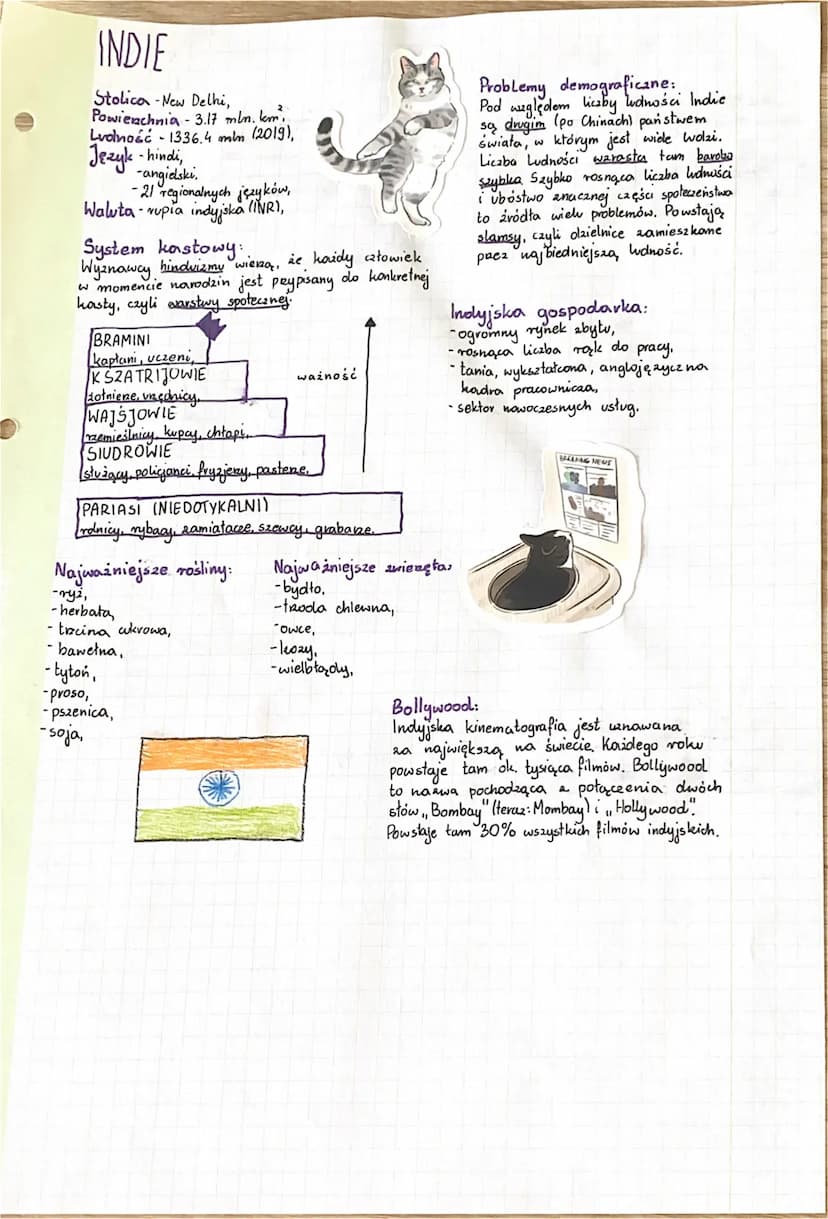 INDIE
Stolica - New Delhi,
Powierzchnia - 3.17 mln. km²,
Ludność - 1336.4 mln (2019),
Język - hindi,
- angielski,
- 21 regionalnych języków,
Waluta - rupia indyjska (INR),
System kastowy:
Wyznawcy hinduizmu wierzą, że każdy człowiek
w momencie narodzin jest przypisany do konkretnej
kasty, czyli warstwy społecznej.
BRAMINI
kapłani, uczeni,
KSZATRIJOWIE
żołnierze, urzędnicy,
WAJŚJOWIE
rzemieślnicy, kupcy, chłopi,
SIUDROWIE
służący, policjanci, fryzjerzy, pasterze,
ważność
PARIASI (NIEDOTYKALNI)
rolnicy, rybacy, zamiatacze, szewcy, grabarze.
Najważniejsze rośliny:
- ryż,
- herbata,
- trzcina cukrowa,
- bawełna,
- tytoń,
- proso,
- pszenica,
- soja,
Najważniejsze zwierzęta:
- bydło,
- trzoda chlewna,
- owce,
- kozy,
- wielbłądy,
Problemy demograficzne:
Pod względem liczby ludności Indie
są drugim (po Chinach) państwem
świata, w którym jest wiele ludzi.
Liczba ludności wzrasta tam bardzo
szybko. Szybko rosnąca liczba ludności
i ubóstwo znacznej części społeczeństwa
to źródła wielu problemów. Powstają
slamsy, czyli dzielnice zamieszkane
przez najbiedniejszą ludność.
Indyjska gospodarka:
- ogromny rynek zbytu,
- rosnąca liczba rąk do pracy,
- tania, wykształcona, anglojęzyczna
kadra pracownicza,
- sektor nowoczesnych usług.
BREAKING NEWS
Bollywood:
Indyjska kinematografia jest uznawana
za największą na świecie. Każdego roku
powstaje tam ok. tysiąca filmów. Bollywood
to nazwa pochodząca z połączenia dwóch
słów „Bombay" (teraz: Mombay) i „Hollywood".
Powstaje tam 30% wszystkich filmów indyjskich.